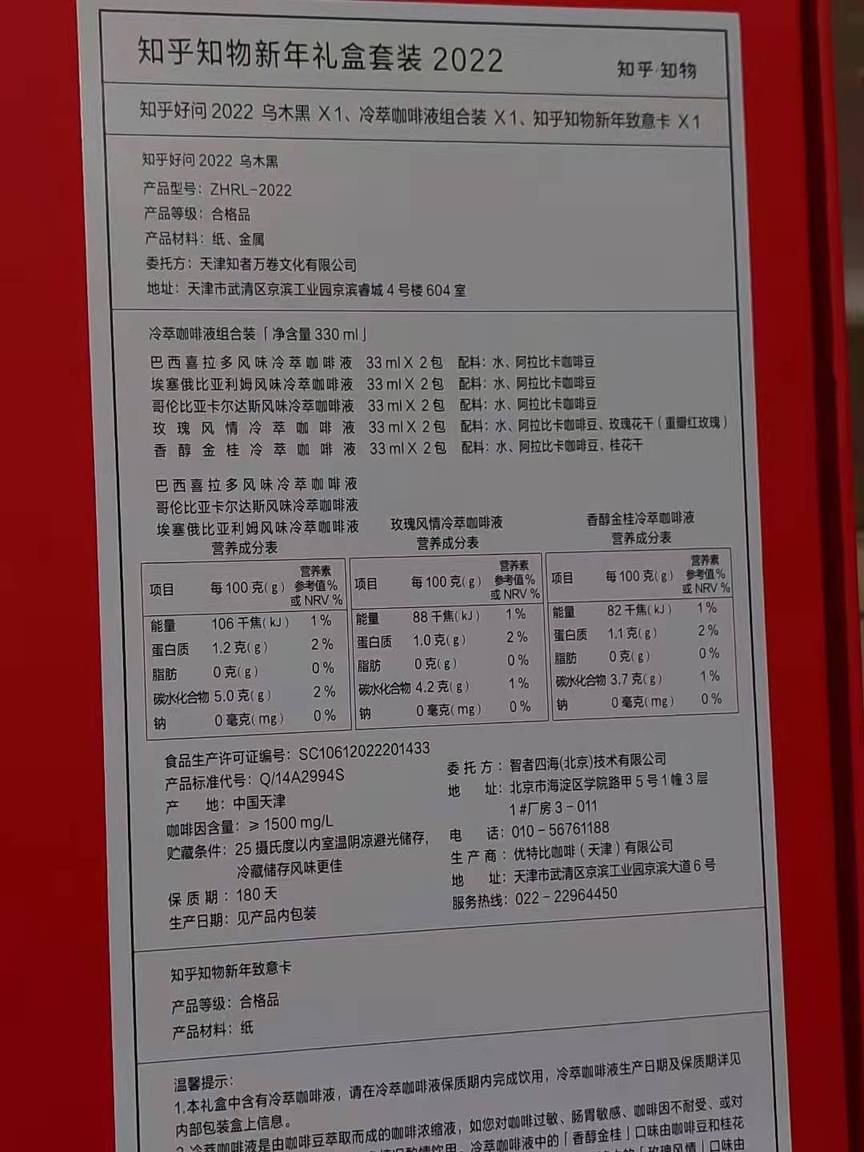 知乎知物新年礼盒套装 2022
知乎·知物
知乎好问 2022 乌木黑 X 1、冷萃咖啡液组合装 X 1、知乎知物新年致意卡 X 1
知乎好问 2022 乌木黑
产品型号：ZHRL-2022
产品等级：合格品
产品材料：纸、金属
委托方：天津知者万卷文化有限公司
地址：天津市武清区京滨工业园京滨睿城 4 号楼 604 室
冷萃咖啡液组合装「净含量 330 ml」
巴西喜拉多风味冷萃咖啡液 33 ml X 2 包 配料：水、阿拉比卡咖啡豆
埃塞俄比亚利姆风味冷萃咖啡液 33 ml X 2 包 配料：水、阿拉比卡咖啡豆
哥伦比亚卡尔达斯风味冷萃咖啡液 33 ml X 2 包 配料：水、阿拉比卡咖啡豆
玫瑰风情冷萃咖啡液 33 ml X 2 包 配料：水、阿拉比卡咖啡豆、玫瑰花干（重瓣红玫瑰）
香醇金桂冷萃咖啡液 33 ml X 2 包 配料：水、阿拉比卡咖啡豆、桂花干
巴西喜拉多风味冷萃咖啡液
哥伦比亚卡尔达斯风味冷萃咖啡液
埃塞俄比亚利姆风味冷萃咖啡液
营养成分表
项目 每 100 克(g) 营养素参考值%或 NRV %
能量 106 千焦(kJ) 1%
蛋白质 1.2 克(g) 2%
脂肪 0 克(g) 0%
碳水化合物 5.0 克(g) 2%
钠 0 毫克(mg) 0%
玫瑰风情冷萃咖啡液
营养成分表
项目 每 100 克(g) 营养素参考值%或 NRV %
能量 88 千焦(kJ) 1%
蛋白质 1.0 克(g) 2%
脂肪 0 克(g) 0%
碳水化合物 4.2 克(g) 1%
钠 0 毫克(mg) 0%
香醇金桂冷萃咖啡液
营养成分表
项目 每 100 克(g) 营养素参考值%或 NRV %
能量 82 千焦(kJ) 1%
蛋白质 1.1 克(g) 2%
脂肪 0 克(g) 0%
碳水化合物 3.7 克(g) 1%
钠 0 毫克(mg) 0%
食品生产许可证编号：SC10612022201433
产品标准代号：Q/14A2994S
产 地：中国天津
咖啡因含量：≥ 1500 mg/L
贮藏条件：25 摄氏度以内室温阴凉避光储存，
冷藏储存风味更佳
保质期：180 天
生产日期：见产品内包装
委托方：智者四海(北京)技术有限公司
地 址：北京市海淀区学院路甲 5 号 1 幢 3 层
1 #厂房 3 - 011
电 话：010 - 56761188
生产商：优特比咖啡（天津）有限公司
地 址：天津市武清区京滨工业园京滨大道 6 号
服务热线：022 - 22964450
知乎知物新年致意卡
产品等级：合格品
产品材料：纸
温馨提示：
1.本礼盒中含有冷萃咖啡液，请在冷萃咖啡液保质期内完成饮用，冷萃咖啡液生产日期及保质期详见
内部包装盒上信息。
2.冷萃咖啡液是由咖啡豆萃取而成的咖啡浓缩液，如您对咖啡过敏、肠胃敏感、咖啡因不耐受、或对
情况酌情饮用。冷萃咖啡液中的「香醇金桂」口味由咖啡豆和桂花
「玫瑰风情」口味由